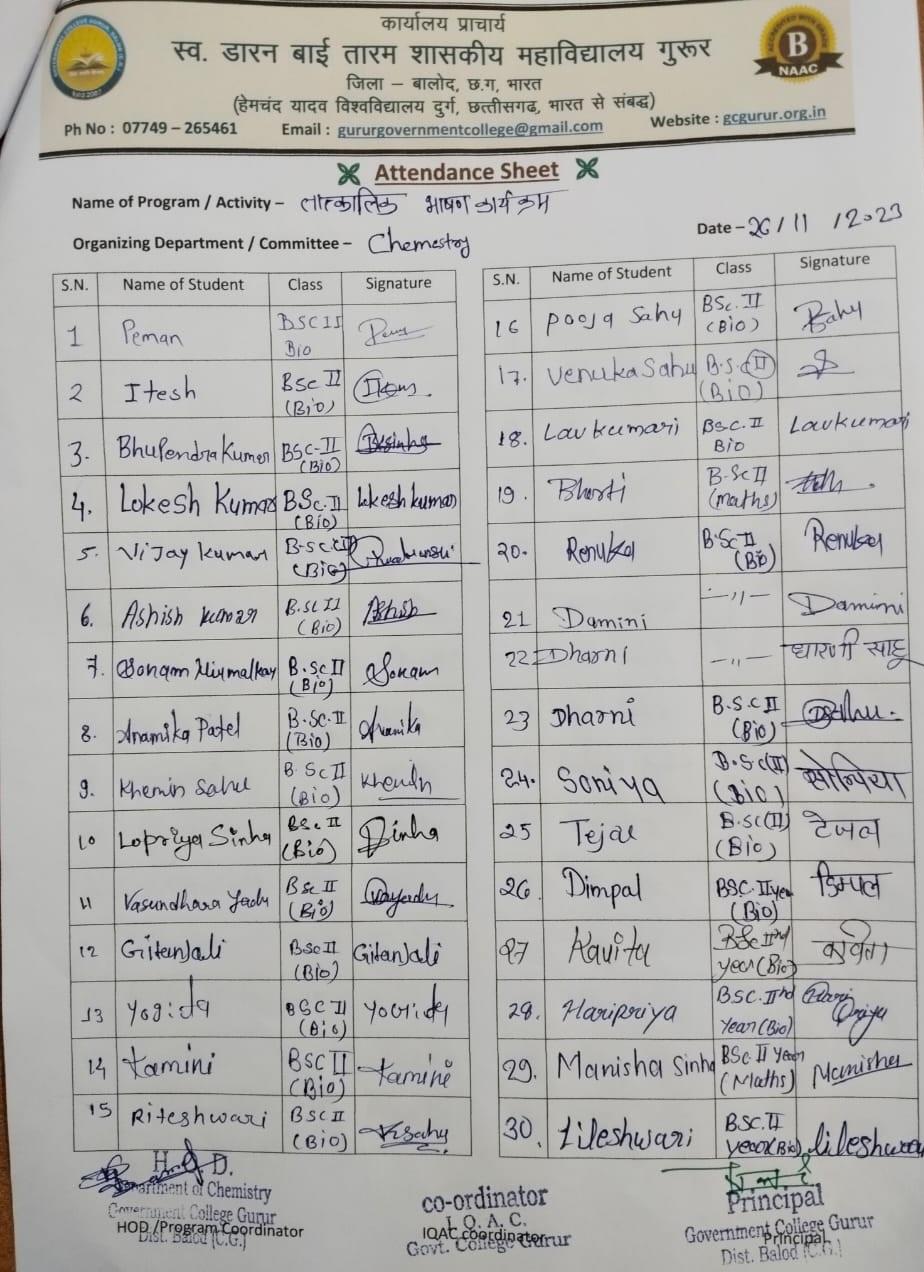 कार्यालय प्राचार्य
स्व. डारन बाई तारम शासकीय महाविद्यालय गुरूर
जिला – बालोद, छ.ग, भारत
(हेमचंद यादव विश्वविद्यालय दुर्ग, छत्तीसगढ, भारत से संबद्ध)
Ph No : 07749 – 265461 Email : gururgovernmentcollege@gmail.com Website : gcgurur.org.in
B
NAAC
Attendance Sheet
Name of Program / Activity – तात्कालिक भाषण कार्यक्रम
Date – 26/11/2023
Organizing Department / Committee – Chemestry
S.N. Name of Student Class Signature
1 Peman BSC II Bio
2 Itesh BSc II (Bio)
3. Bhupendra Kumar BSC-II (Bio)
4. Lokesh Kumar BSc.II (Bio) Lokesh kumar
5. Vijay kumar B.SC (II) (Bio)
6. Ashish kumar B.SC II (Bio) Ashish
7. Sonam Nirmalkar B.Sc II (Bio) Sonam
8. Anamika Patel B.Sc.II (Bio) Anamika
9. Khemin Sahu B.Sc II (Bio)
10 Lopriya Sinha BSc II (Bio) Sinha
11 Vasundhara Yadu BSc II (Bio)
12 GitanJali BSc II (Bio) GitanJali
13 Yogida BSC II (Bio) Yogida
14 Kamini BSC II (Bio) Kamini
15 Riteshwari BSC II (Bio)
S.N. Name of Student Class Signature
16 Pooja Sahu BSc.II (Bio)
17. Venuka Sahu B.S.C II (Bio)
18. Lavkumari BSC.II Bio Lavkumari
19. Bharti B.Sc II (maths)
20. Renuka B.Sc II (Bio) Renuka
21 Damini –,,– Damini
22 Dharni –,,– धारणी साहू
23 Dharni B.S.C II (Bio)
24. Soniya B.Sc(II) (Bio)
25 Tejal B.SC(II) (Bio) टेजल
26 Dimpal BSC.II year (Bio) डिम्पल
27 Kavita BSc IInd year (Bio) कविता
28. Haripriya BSC.IInd Year (Bio) Haripriya
29. Manisha Sinha BSc II Year (Maths) Manisha
30. Lileshwari BSC.II year (Bio) Lileshwari
H.O.D.
Department of Chemistry
Government College Gurur
HOD /Program Coordinator
Dist. Balod (C.G.)
co-ordinator
I. Q. A. C.
IQAC coordinator
Govt. College Gurur
Principal
Government College Gurur
Principal
Dist. Balod (C.G.)